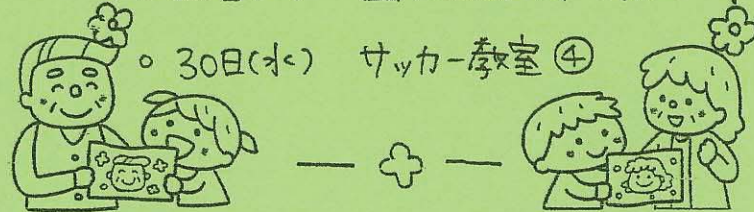 ○ 30日(水) サッカー教室④